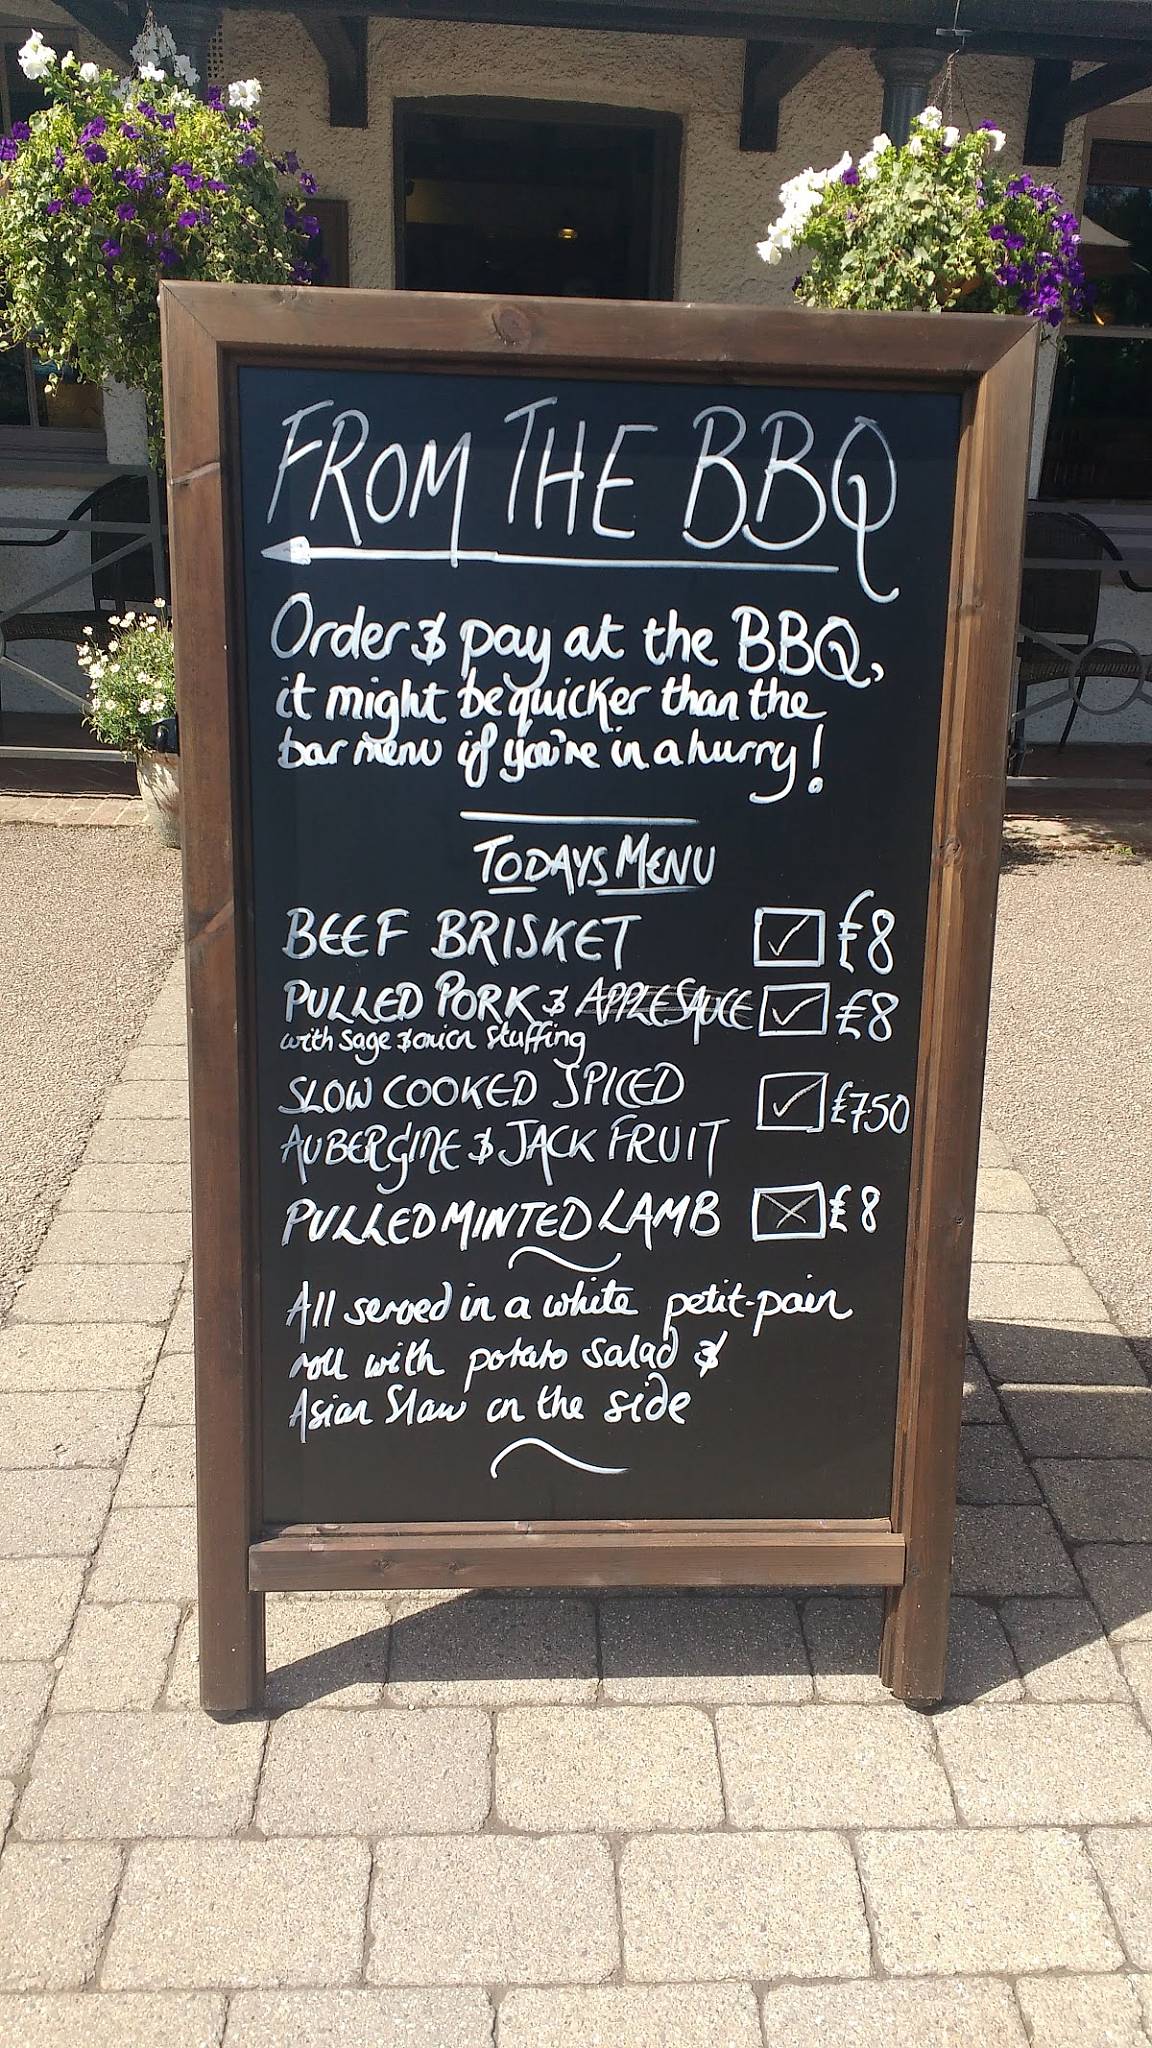 FROM THE BBQ
Order & pay at the BBQ,
it might be quicker than the
bar menu if you're in a hurry!
TODAYS MENU
BEEF BRISKET £8
PULLED PORK & APPLE SAUCE £8
with Sage & onion Stuffing
SLOW COOKED SPICED
£7.50
AUBERGINE & JACK FRUIT
PULLED MINTED LAMB £8
All served in a white petit-pain
roll with potato salad &
Asian Slaw on the side